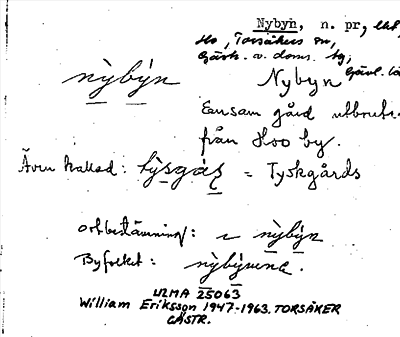 Nybyn, n. pr,
Hoo, Torsåkers sn,
Gästr. v. doms. hg,
nỳbýn Nybyn
Ensam gård utbruten
från Hoo by.
Även kallad: týsgás = Tyskgårds
ortbestämning: nỳbýn
Byfolket: nỳbýnena.
ULMA 25063
William Eriksson 1947-1963. TORSÅKER
GÄSTR.